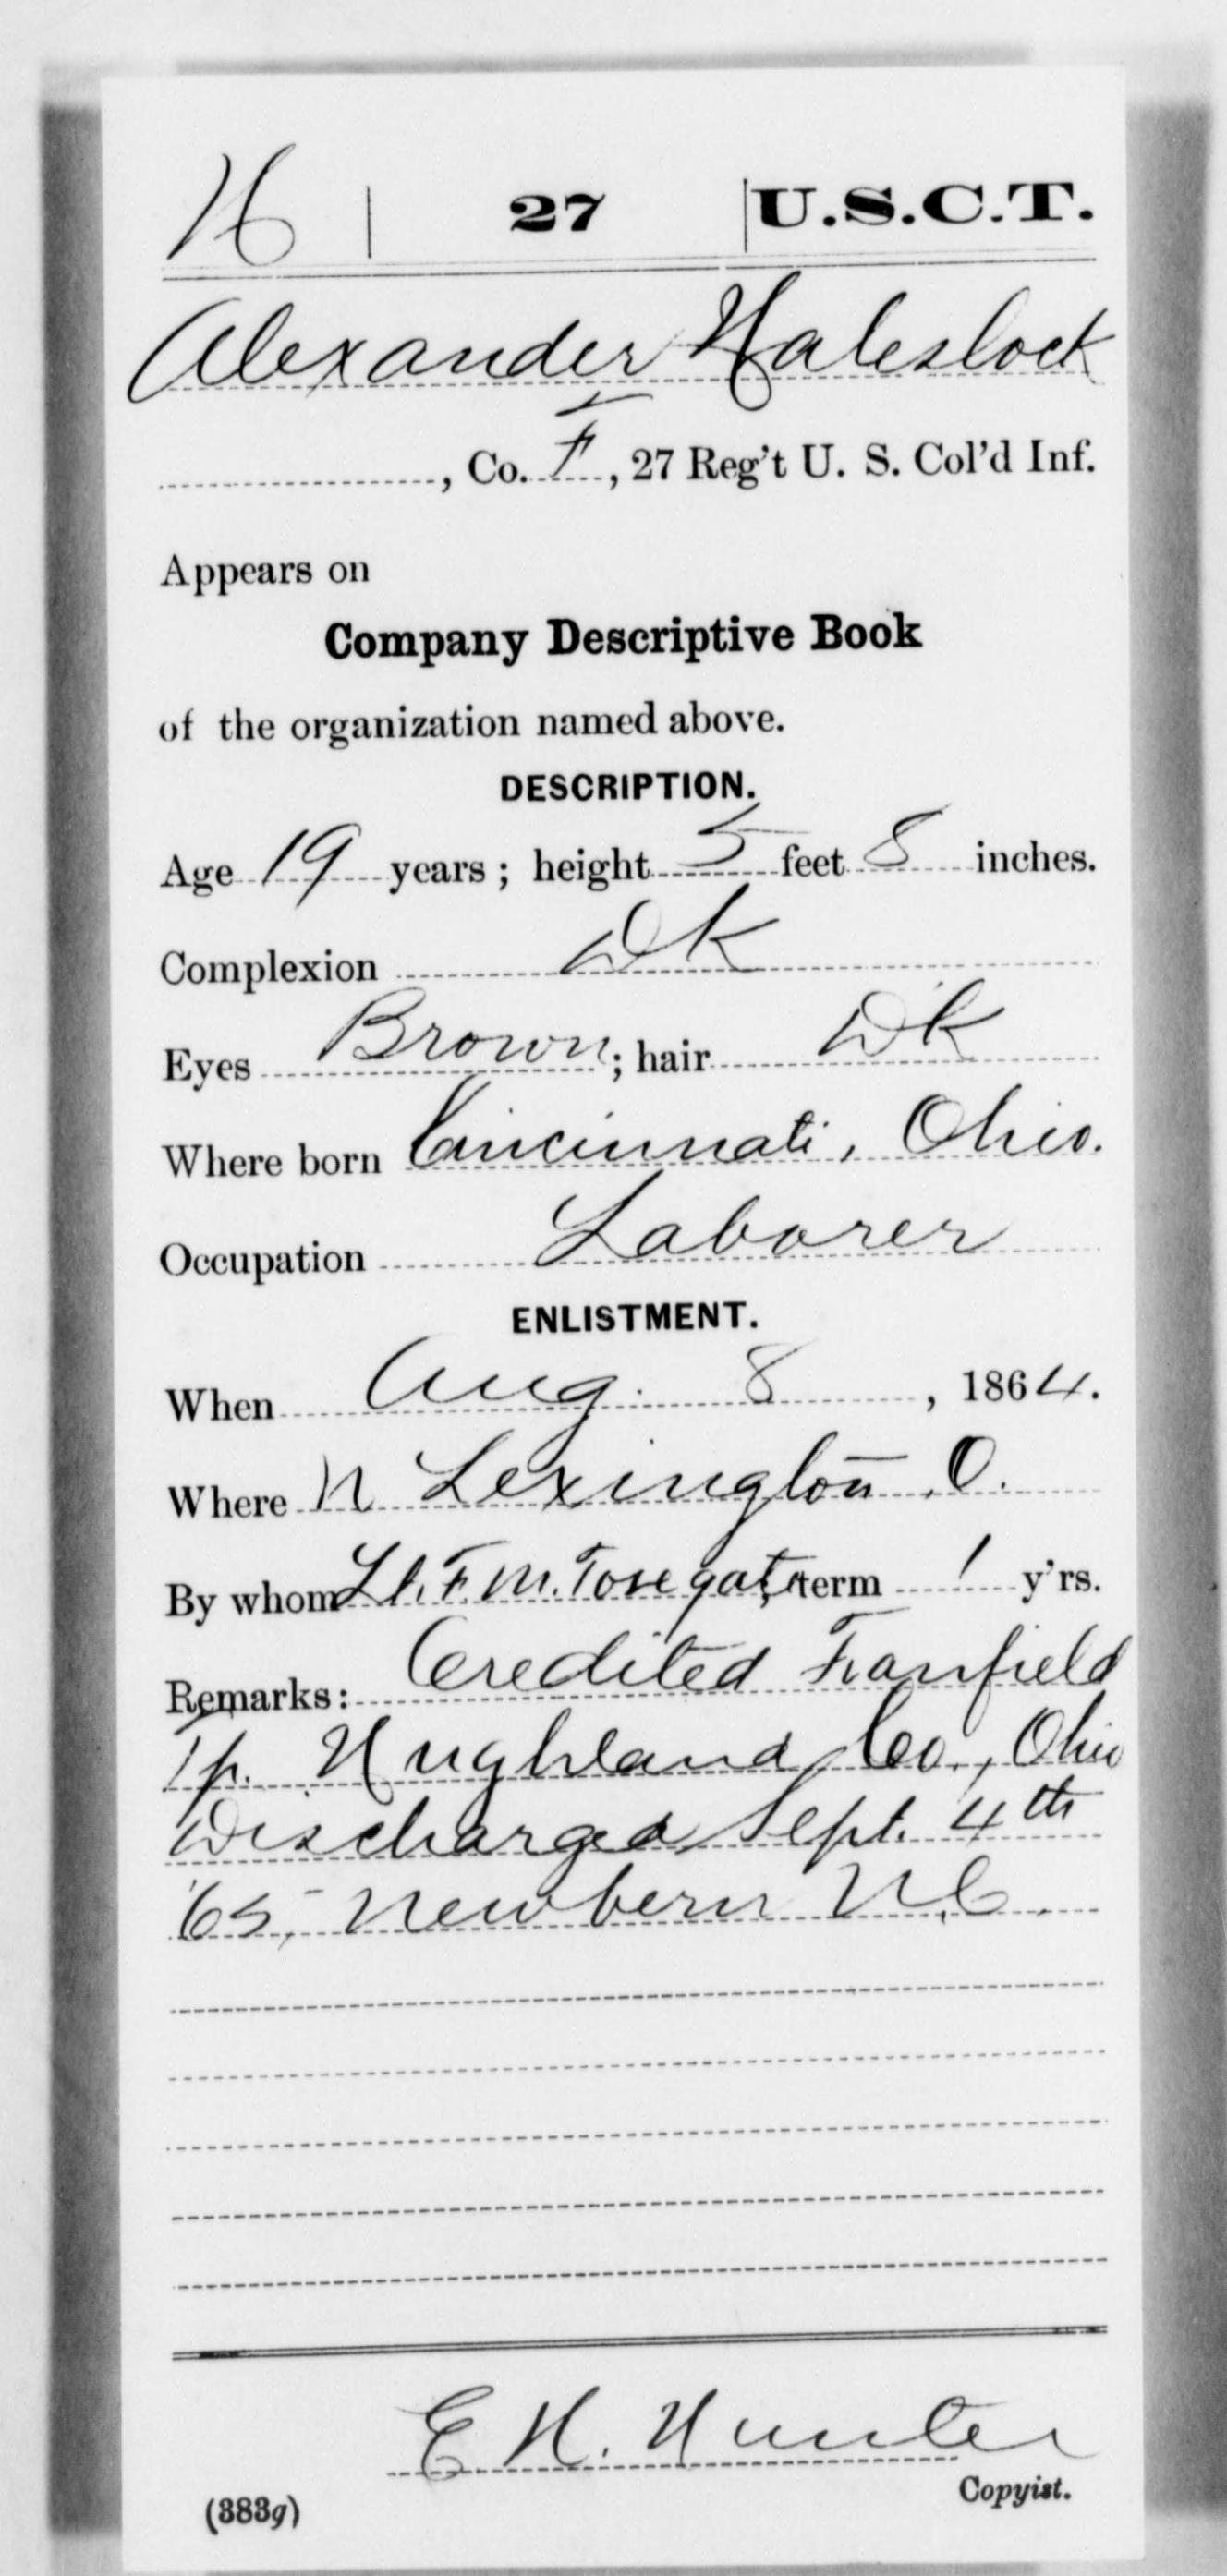 H | 27 | U.S.C.T.
Alexander Haleslock
, Co. F, 27 Reg't U. S. Col'd Inf.
Appears on
Company Descriptive Book
of the organization named above.
DESCRIPTION.
Age 19 years; height 5 feet 8 inches.
Complexion Dk
Eyes Brown; hair Dk
Where born Cincinnati, Ohio.
Occupation Laborer
ENLISTMENT.
When Aug. 8, 1864.
Where N Lexington, O.
By whom Lt. F. M. , term 1 y'rs.
Remarks: Credited Fairfield
Tp. Highland Co., Ohio
Discharged Sept. 4th
'65, Newbern N.C.
E H. Hunter
Copyist.
(383g)